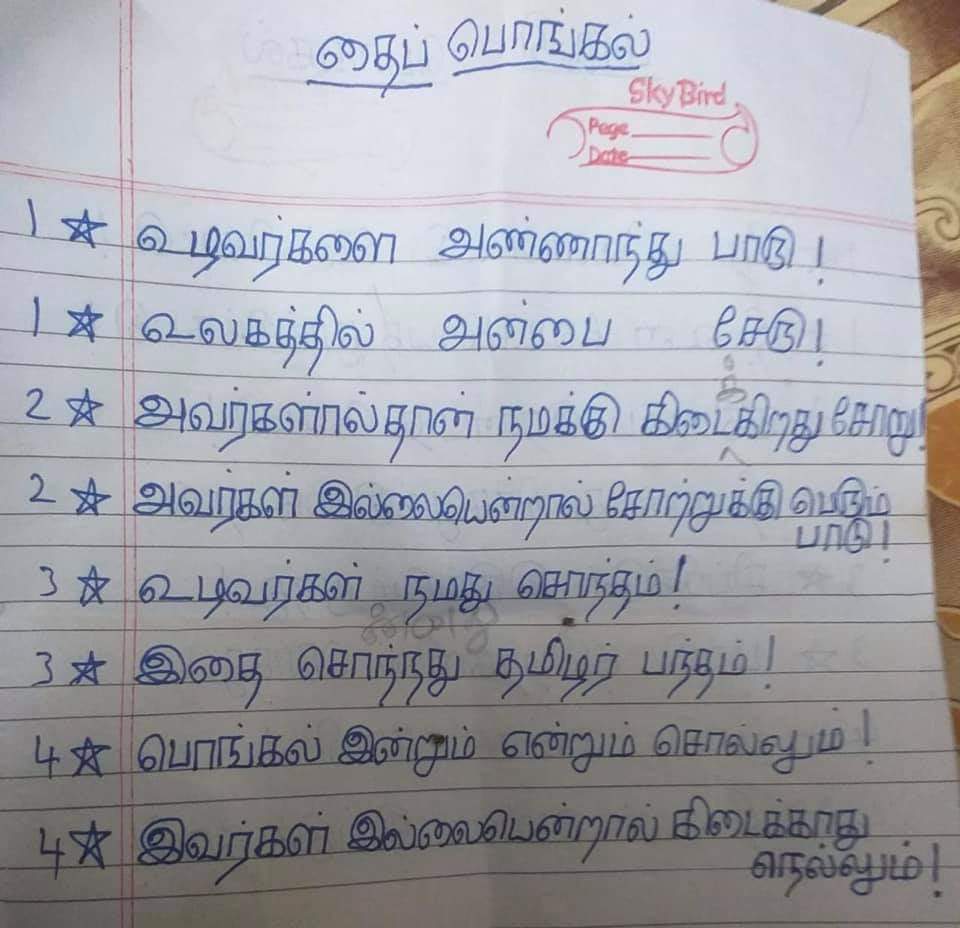 தைப் பொங்கல்
Sky Bird
Page
Date
1 ☆ உழவர்களை அண்ணாந்து பாடு!
1 ☆ உலகத்தில் அன்பை சேடு!
2 ☆ அவர்கள்ால்தான் நமக்கு கிடைக்கிறது சோறு!
2 ☆ அவர்கள் இல்லையென்றால் சோற்றுக்கு பெடும்
பாடு!
3 ☆ உழவர்கள் நமது சொந்தம்!
3 ☆ இதை சொந்நது தமிழர் பந்தம்!
4 ☆ பொங்கல் இன்றும் என்றும் சொல்லும்!
4 ☆ இவர்கள் இல்லையென்றால் கிடைக்காது
நெல்லும்!